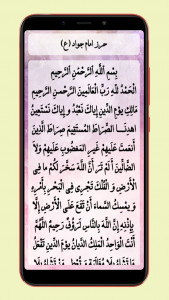 حرز امام جواد (ع)
بِسْمِ اللَّهِ الرَّحْمَنِ الرَّحِيمِ
الْحَمْدُ لِلَّهِ رَبِّ الْعَالَمِينَ الرَّحْمَنِ الرَّحِيمِ
مَالِكِ يَوْمِ الدِّينِ إِيَّاكَ نَعْبُدُ وَ إِيَّاكَ نَسْتَعِينُ
اهْدِنَا الصِّرَاطَ الْمُسْتَقِيمَ صِرَاطَ الَّذِينَ
أَنْعَمْتَ عَلَيْهِمْ غَيْرِ الْمَغْضُوبِ عَلَيْهِمْ وَلَا
الضَّالِّينَ أَلَمْ تَرَ أَنَّ اللَّهَ سَخَّرَ لَكُمْ مَا فِي
الْأَرْضِ وَ الْفُلْكَ تَجْرِي فِي الْبَحْرِ بِأَمْرِهِ
وَ يُمْسِكُ السَّمَاءَ أَنْ تَقَعَ عَلَى الْأَرْضِ إِلَّا
بِإِذْنِهِ إِنَّ اللَّهَ بِالنَّاسِ لَرَؤُفٌ رَحِيمٌ اللَّهُمَّ
أَنْتَ الْوَاحِدُ الْمَلِكُ الدَّيَّانُ يَوْمَ الدِّينِ تَفْعَلُ